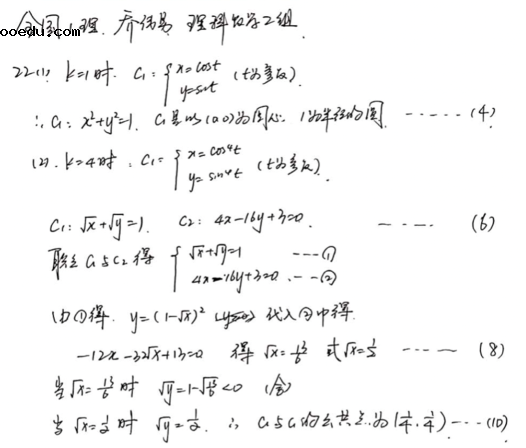 全国I理. 乔伟易 理科数学2组
ooedu.com
22.(1) k=1时. C₁: { x=cost
y=sint (t为参数).
∴ C₁: x²+y²=1. C₁是以(0,0)为圆心 1为半径的圆 ----- (4)
(2). k=4时: C₁= { x=cos⁴t
y=sin⁴t (t为参数).
C₁: √x+√y=1. C₂: 4x-16y+3=0. ---- (6)
联立C₁与C₂得 { √x+√y=1 ---①
4x-16y+3=0 --②
由①得. y=(1-√x)² 代入②中得.
-12x-32√x+13=0 得 √x=13/6 或√x=1/2 ---- (8)
当√x=13/6时 √y=1-√13/6<0 (舍)
当√x=1/2时 √y=1/2. ∴ C₁与C₂的公共点为(1/4, 1/4) --- (10)